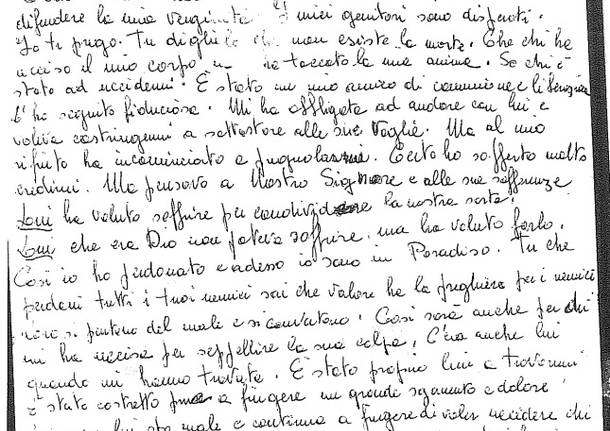 difendere la mia verginità. I miei genitori sono disperati.
Io ti prego. Tu digli che non esiste la morte. Che chi ha
ucciso il mio corpo non ha toccato la mia anima. Se chi è
stato ad uccidermi. È stato un mio amico di comunione e liberazione
L'ho seguito fiduciosa. Mi ha obbligata ad andare con lui e
voleva costringermi a sottostare alle sue voglie. Ma al mio
rifiuto ha incominciato a pugnalarmi. Certo ho sofferto molto
credimi. Ma pensavo a Nostro Signore e alle sue sofferenze
Lui ha voluto soffrire per condividere la nostra sorte.
Lui che era Dio non poteva soffrire, ma ha voluto farlo.
Così io ho perdonato e adesso io sono in Paradiso. Tu che
perdoni tutti i tuoi nemici sai che valore ha la preghiera per i nemici
si pentono del male e si convertono. Così sarà anche per chi
mi ha uccisa per seppellire la sua colpa. C'era anche lui
quando mi hanno trovata. È stato proprio lui a trovarmi
è stato costretto a fingere un grande sgomento e dolore
lui sta male e continua a fingere di voler uccidere chi